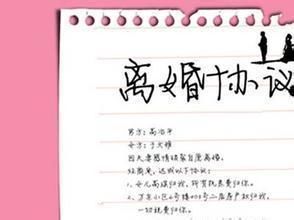 离婚协议
男方：高浩平
女方：于天雅
因夫妻感情破裂自愿离婚。
经商定，达成以下协议：
1、女儿高媛归我，所有抚养费归你。
2、万东小区6号楼403号二居房产权归我，
一切税费归你。